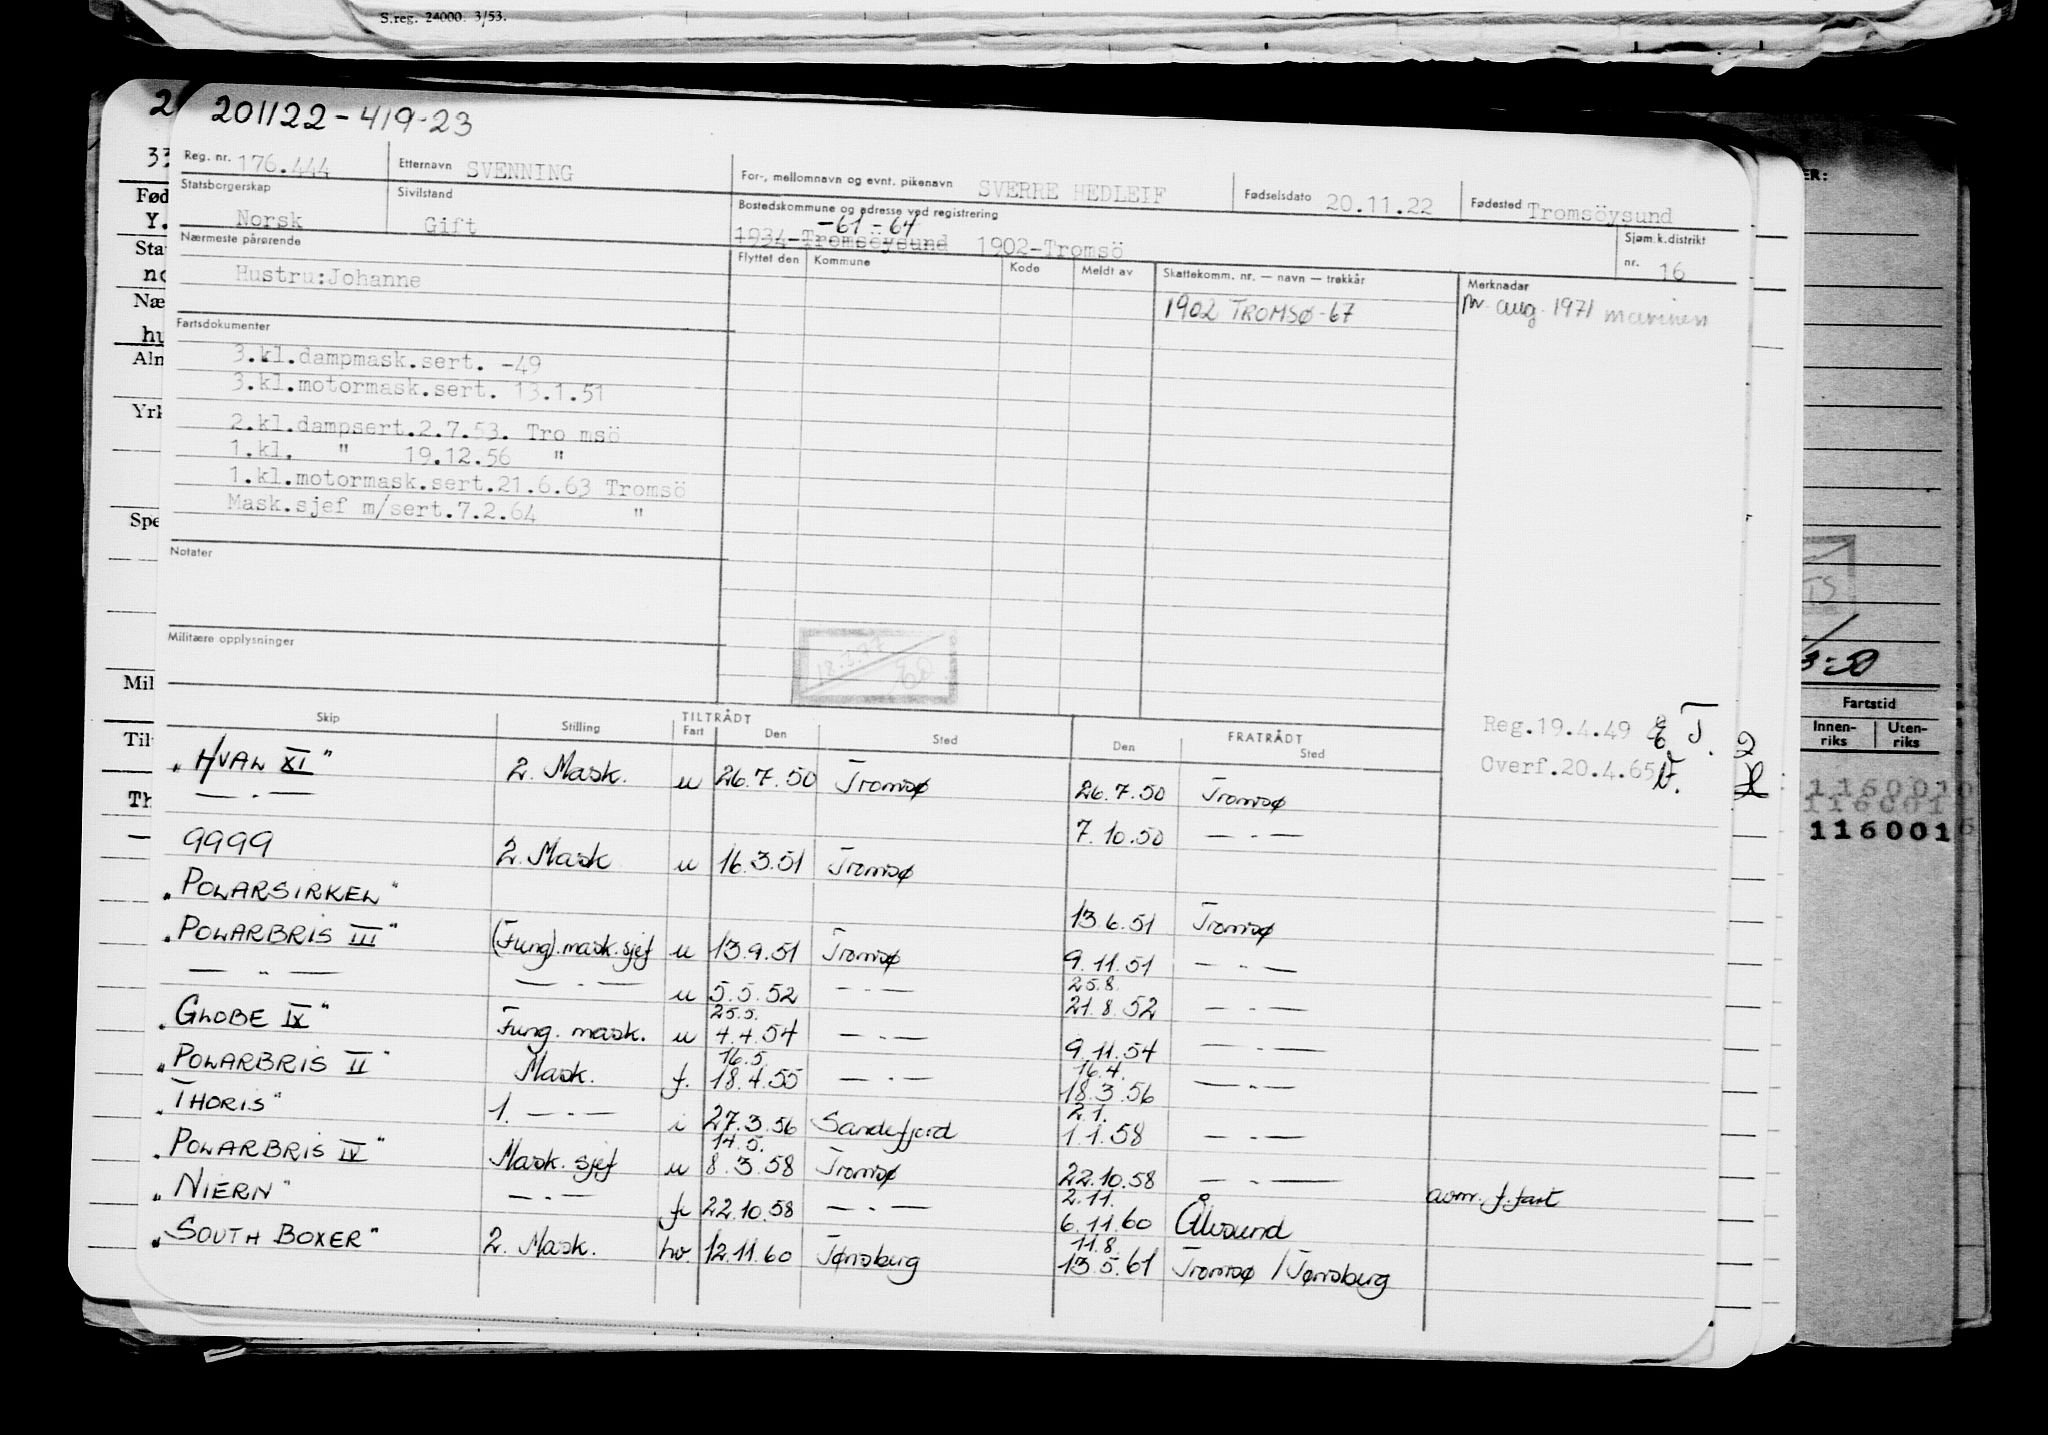 S.reg. 24000. 3/53.
201122-419-23
Reg. nr. 176.444 Etternavn SVENNING For-, mellomnavn og evnt. pikenavn SVERRE HEDLEIF Fødselsdato 20.11.22 Fødested Tromsöysund
Statsborgerskap Norsk Sivilstand Gift Bostedskommune og adresse ved registrering -61-64
1934-Tromsöysund 1902-Tromsö Sjøm.k.distrikt nr. 16
Nærmeste pårørende Flyttet den Kommune Kode Meldt av Skattekomm. nr. — navn — trekkår Merknader
Hustru:Johanne 1902 TROMSØ-67 pr. aug. 1971 marinen
Fartsdokumenter
3.kl.dampmask.sert. -49
3.kl.motormask.sert. 13.1.51
2.kl.dampsert.2.7.53. Tro msö
1.kl. " 19.12.56 "
1.kl.motormask.sert.21.6.63 Tromsö
Mask.sjef m/sert.7.2.64 "
Notater
Militære opplysninger
Reg.19.4.49
Overf.20.4.65
Skip Stilling TILTRÅDT Fart Den Sted FRATRÅDT Den Sted
"HVAL XI" 2. Mask. u 26.7.50 Tromsø 26.7.50 Tromsø
— . — 7.10.50 — . —
9999 2. Mask u 16.3.51 Tromsø
"POLARSIRKEL" 13.6.51 Tromsø
"POLARBRIS III" (Fung).mask.sjef u 13.9.51 Tromsø 9.11.51 — . —
— " — — . — u 5.5.52 — . — 25.8. 21.8.52 — . —
"GLOBE IX" Fung. mask. u 25.5. 4.4.54 — . — 9.11.54 — . —
"POLARBRIS II" Mask. f. 16.5. 18.4.55 — . — 16.4. 18.3.56 — . —
"THORIS" 1. — . — i 27.3.56 Sandefjord 2.1. 1.1.58 — . —
"POLARBRIS IV" Mask. sjef u 14.5. 8.3.58 Tromsø 22.10.58 — . —
"NIERN" — . — fi 22.10.58 — . — 2.11. 6.11.60 Ålesund avm. f. fart
"SOUTH BOXER" 2. Mask. hv. 12.11.60 Tønsberg 11.8. 13.5.61 Tromsø / Tønsberg
2
33
Fød
Y.
Sta
no
Næ
hu
Aln
Yrk
Spe
Mil
Til
Th
ER:
TS
3-50
Fartstid
Innen-riks Uten-riks
116001
116001
116001